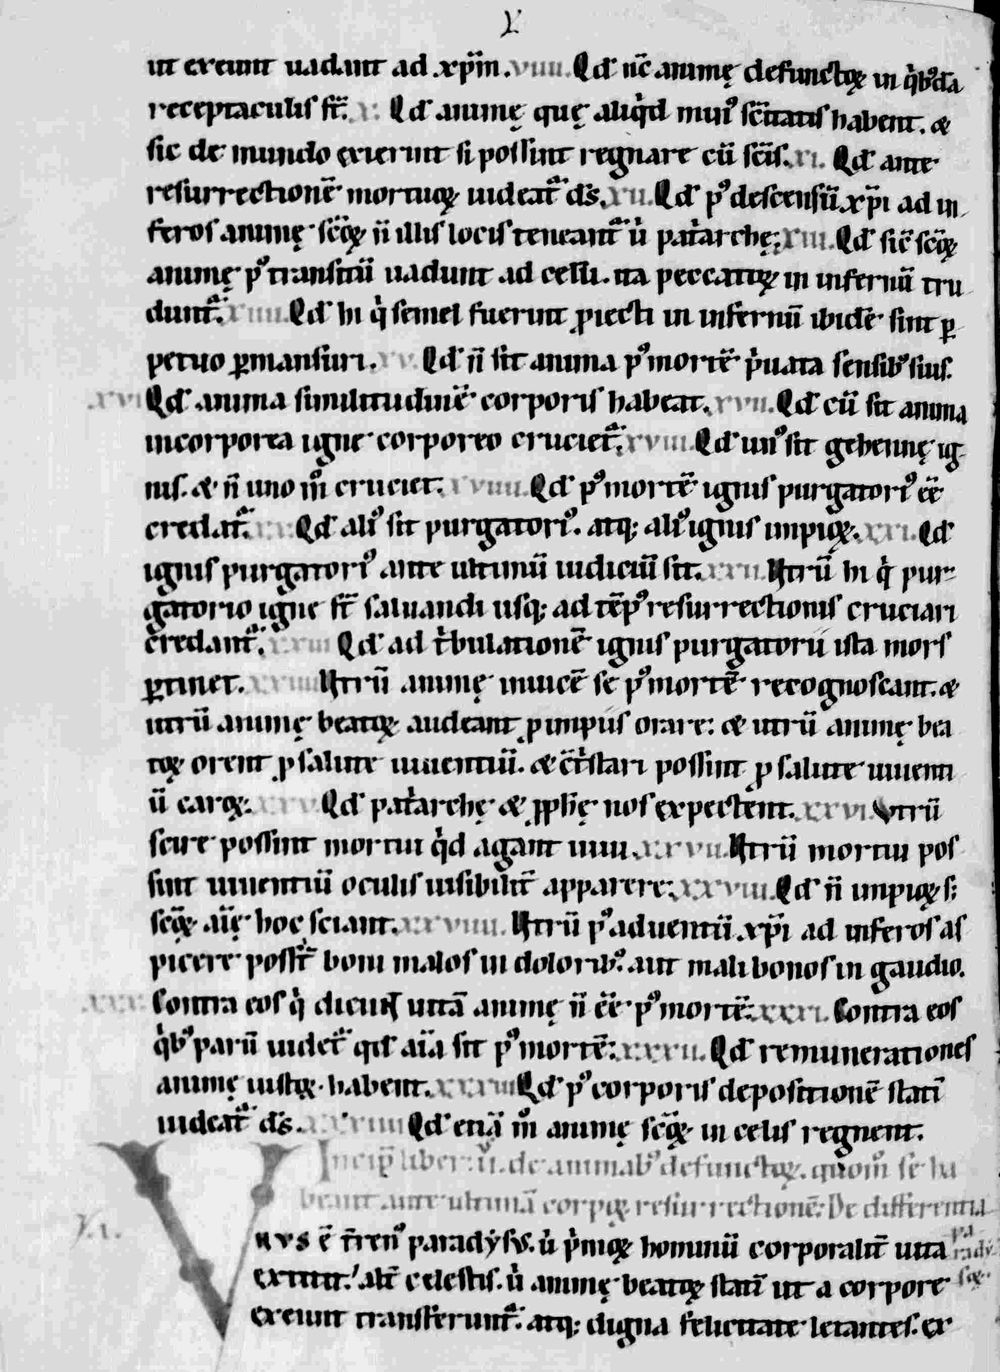 ut exeunt uadunt ad xp̄m. viiii. Qd̄ nc̄ animę defunctoꝝ in q̇bꝰdā
receptaculis st̄. x. Qd̄ animę quę aliq̇d minꝰ sc̄itatis habent. &
sic de mundo exierint si possint regnare cū sc̄is. xi. Qd̄ ante
resurrectionē mortuoꝝ uideat᷑ ds̄. xii. Qd̄ pꝰ descensū xp̄i ad in
feros animę sc̄oꝝ n̄ illis locis teneant᷑ u̇ pat̓archę. xiii. Qd̄ sic̄ sc̄oꝝ
animę pꝰ transitū uadunt ad celū. ita peccatoꝝ in infernū tru
dunt᷑. xiiii. Qd̄ hi q̇ semel fuerint ꝓiecti in infernū ibidē sint ꝑ
petuo ꝑmansuri. xv. Qd̄ n̄ sit anima pꝰ mortē p̓uata sensibꝰ suis.
xvi Qd̄ anima similitudinē corporis habeat. xvii. Qd̄ cū sit anima
incorporea igne corporeo cruciet᷑. xviii. Qd̄ unꝰ sit gehennę ig
nis. & n̄ uno m̊ cruciet. xviiii. Qd̄ pꝰ mortē ignis purgatoriꝰ ēē
credat᷑. xx. Qd̄ aliꝰ sit purgatoriꝰ. atq; aliꝰ ignis impioꝝ. xxi. Qd̄
ignis purgatoriꝰ ante ultimū iudiciū sit. xxii. Utrū hi q̇ pur
gatorio igne st̄ saluandi usq; ad tēpꝰ resurrectionis cruciari
credant᷑. xxiii Qd̄ ad t̓bulationē ignis purgatorii ista mors
ꝑtinet. xxiiii Utrū animę inuicē se pꝰ mortē recognoscant. &
utrū animę beatoꝝ audeant ꝓ impiis orare: & utrū animę bea
toꝝ orent ꝓ salute uiuentiū. & ct̓stari possint ꝓ salute uiuenti
ū caroꝝ. xxv. Qd̄ pat̓archę & ꝓph̄ę nos expectent. xxvi. Vtrū
scire possint mortui q̇d agant uiui. xxvii. Utrū mortui pos
sint uiuentiū oculis uisibilit̄ apparere. xxviii. Qd̄ n̄ impioꝝ s;
sc̄oꝝ aīę hoc sciant. xxviiii. Utrū pꝰ aduentū xp̄i ad inferos as
picere posst̓ boni malos in doloribꝰ. aut mali bonos in gaudio.
xxx. Contra eos q̇ dicunt uitā animę n̄ ēē pꝰ mortē. xxxi. Contra eos
q̇bꝰ parū uidet᷑ qd̄ aīa sit pꝰ mortē. xxxii. Qd̄ remunerationes
animę iustoꝝ habent. xxxiii Qd̄ pꝰ corporis depositionē statī
uideat᷑ ds̄. xxxiiii Qd̄ etiā m̊ animę sc̄oꝝ in celis regnent.
Incip̄ liber: vi. de animabꝰ defunctoꝝ. quom̊ se ha
beant ante ultimā corpoꝝ resurrectionē: De differentia
VNVS ē t̄renꝰ paradẏsꝰ. u̇ p̓moꝝ hominū corporalit̄ uita
extitit. alt̄ celestis. u̇ animę beatoꝝ statī ut a corpore
exeunt transferunt᷑. atq; digna felicitate letantes. ex